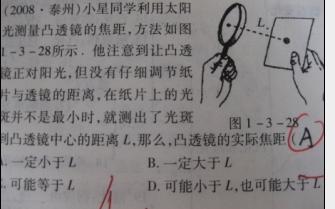 (2008·泰州)小星同学利用太阳
光测量凸透镜的焦距,方法如图
1-3-28所示.他注意到让凸透
镜正对阳光,但没有仔细调节纸
片与透镜的距离,在纸片上的光
斑并不是最小时,就测出了光斑
到凸透镜中心的距离L,那么,凸透镜的实际焦距(A
L
图1-3-28
A.一定小于L
B.一定大于L
C.可能等于L
D.可能小于L,也可能大于L